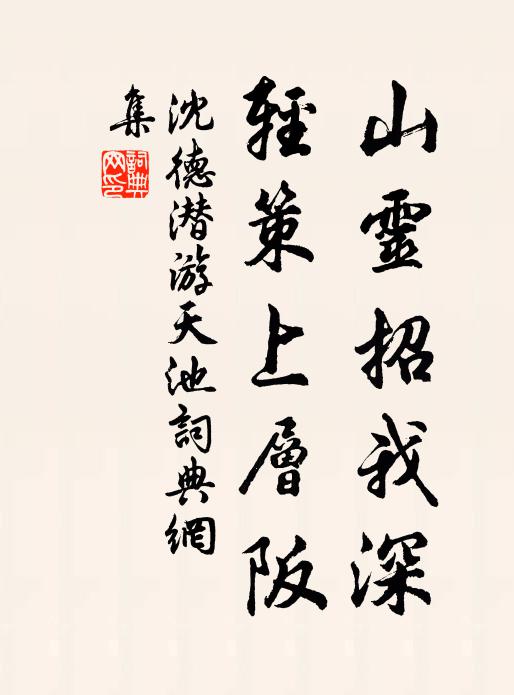 山靈招我深
輕策上層阪
沈德潜游天池詞典網
集
詞典網印